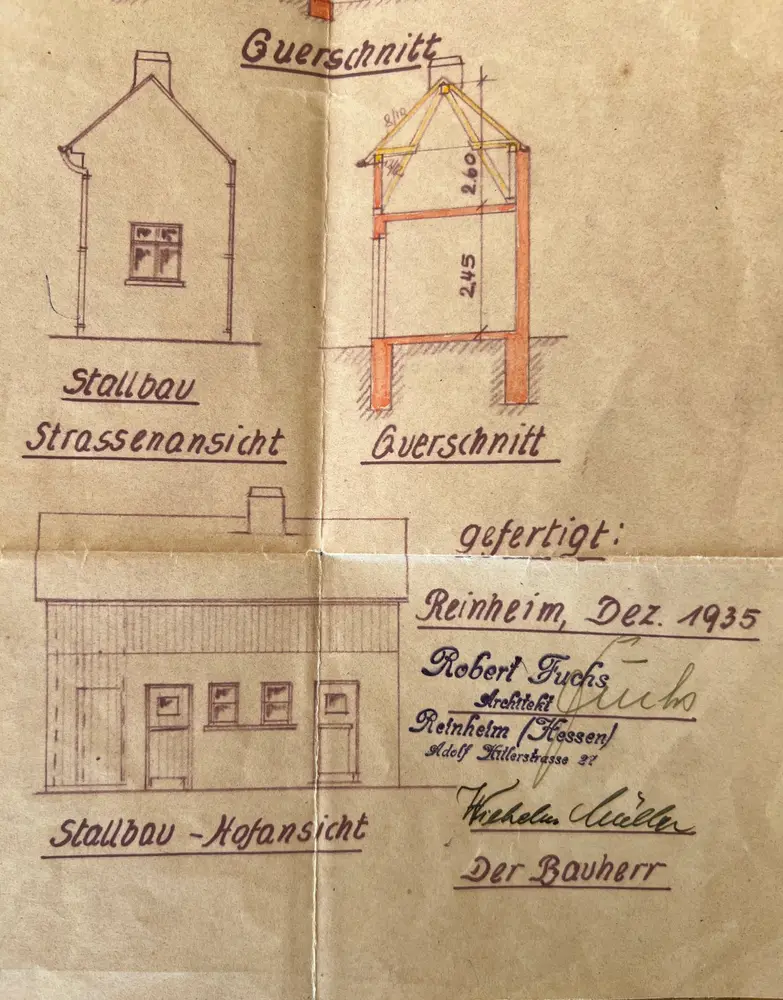 Querschnitt
8/10
2.60
2.45
Stallbau
Strassenansicht
Querschnitt
gefertigt:
Reinheim, Dez. 1935
Robert Fuchs
Architekt
Fuchs
Reinheim (Hessen)
Adolf Hitlerstrasse 27
Wilhelm Müller
Stallbau - Hofansicht
Der Bauherr